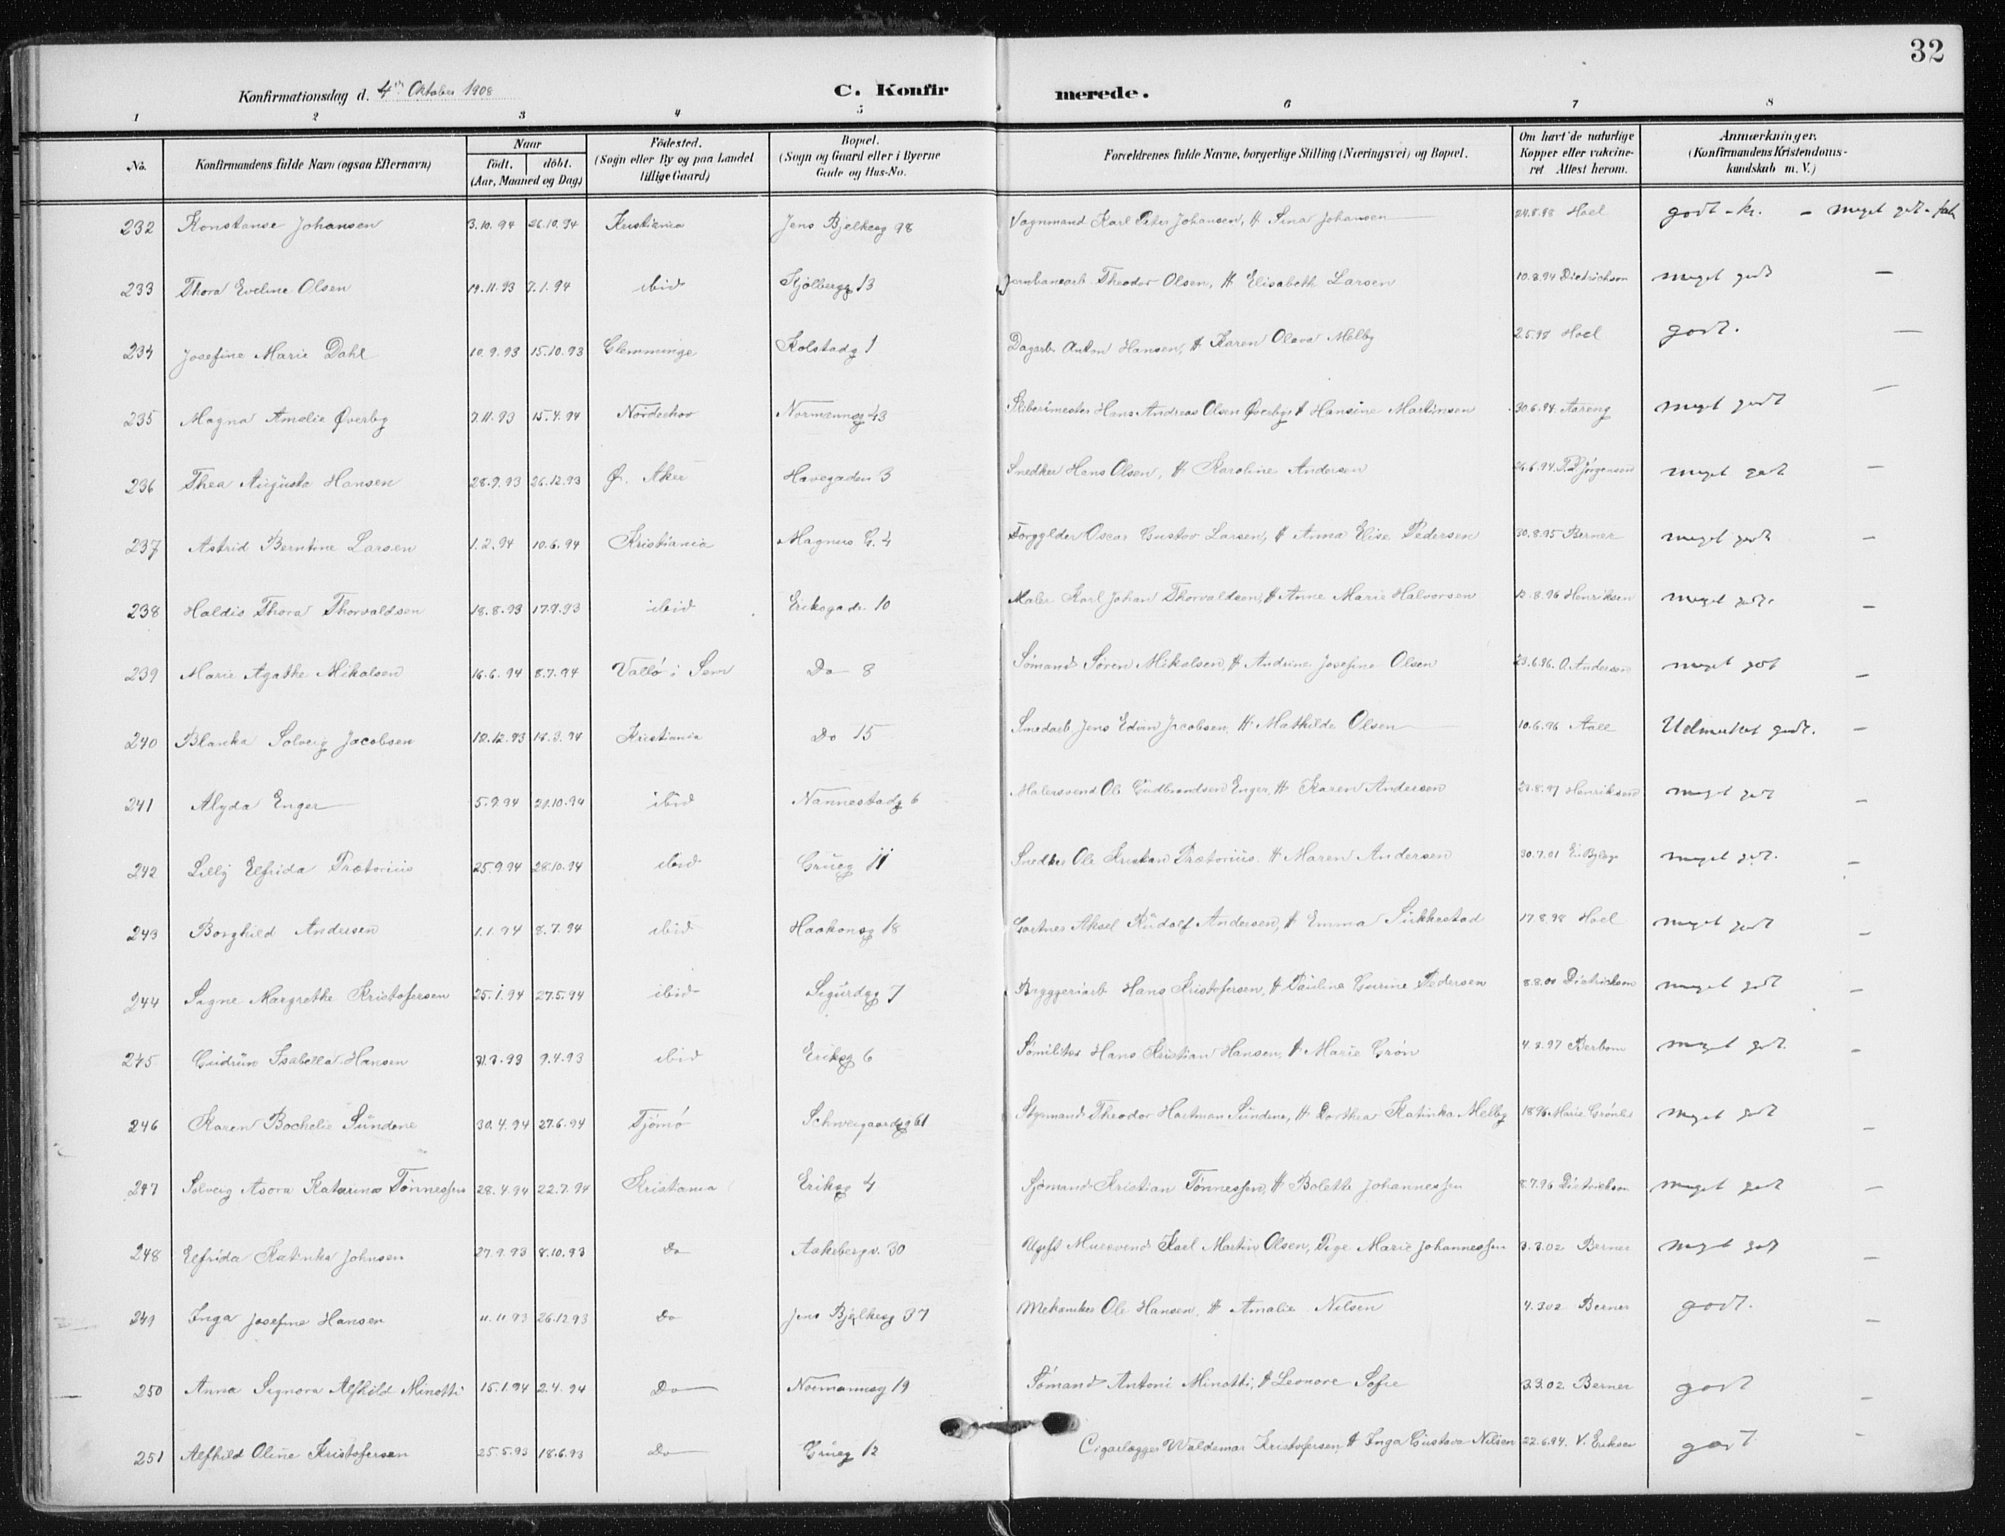 32
Konfirmationsdag d. 4de Oktober 1908
C. Konfirmerede.
1 2 3 4 5 6 7 8
No. Konfirmandens fulde Navn (ogsaa Efternavn) Naar födt. döbt. (Aar, Maaned og Dag) Födested. (Sogn eller By og paa Landet tillige Gaard) Bopæl. (Sogn og Gaard eller i Byerne Gade og Hus-No. Forældrenes fulde Navne, borgerlige Stilling (Næringsvei) og Bopæl. Om havt de naturlige Kopper eller vakcineret Attest herom. Anmærkninger. (Konfirmandens Kristendomskundskab m. V.)
232 Konstanse Johansen 3.10.94 26.10.94 Kristiania Jens Bjelkesg 98 Vognmand Karl Peter Johansen, H Sina Johansen 24.8.98 Hoel godt - kr. - meget godt -
233 Thora Eveline Olsen 14.11.93 7.1.94 ibid Kjölbergg 13 Jernbanearb. Theodor Olsen, H Elisabeth Larsen 10.8.94 Dietrichson meget godt —
234 Josefine Marie Dahl 10.9.93 15.10.93 Glemminge Kolstadg 1 Dagarb. Anton Hansen, H Karen Olava Melby 2.5.98 Hoel godt. —
235 Magna Amalie Øverby 7.11.93 15.4.94 Norderhov Normannsg 43 Skibsrimester Hans Andreas Olsen Øverby, H Hansine Martinsen 30.6.94 Aareng meget godt —
236 Thea Augusta Hansen 28.9.93 26.12.93 Ø. Aker Havegaden 3 Snedker Hans Olsen, H Karoline Andersen 26.6.94 Jörgensen meget godt —
237 Astrid Berntine Larsen 1.2.94 10.6.94 Kristiania Magnus G. 4 Forgylder Oscar Gustav Larsen, H Anna Elise Pedersen 30.8.95 Berner meget godt —
238 Haldis Thora Thorvaldsen 18.8.93 17.9.93 ibid Eriksgade 10 Maler Karl Johan Thorvaldsen, H Anne Marie Halvorsen 12.8.96 Henriksen meget godt. —
239 Marie Agathe Mikalsen 16.6.94 8.7.94 Vallö i Sem Do 8 Sömand Sören Mikalsen, H Andrine Josefine Olsen 23.6.96. O. Andersen meget godt —
240 Blanka Solveig Jacobsen 18.12.93 16.3.94 Kristiania Do 15 Smedarb Jens Edvin Jacobsen, H Mathilde Olsen 10.6.96 Aall Udmerket godt. —
241 Alyda Enger 5.9.94 21.10.94 ibid Nannestadg 6 Malersvend Ole Gudbrandsen Enger, H Karen Andersen 21.8.97 Henriksen meget godt —
242 Lilly Elfrida Prætorius 25.9.94 28.10.94 ibid Grüeg 11 Snedker Ole Kristian Prætorius. H Maren Andersen 30.7.01 meget godt. —
243 Borghild Andersen 1.1.94 8.7.94 ibid Haakonsg 18 Gartner Aksel Rudolf Andersen, H Emma Sükkestad 17.8.98 Hoel meget godt —
244 Signe Margrethe Kristofersen 25.1.94 27.5.94 ibid Sigurdsg 7 Bryggeriarb Hans Kristofersen, H Pauline Gurine Pedersen 8.8.00 Dietrichson meget godt —
245 Gudrün Isabella Hansen 31.3.93 9.4.93 ibid Eriksg 6 Sömilitær Hans Kristian Hansen, H Marie Grön 4.8.97 Berbom meget godt. —
246 Karen Bochelie Sündene 30.4.94 27.6.94 Tjömö Schweigaardsg 61 Styrmand Theodor Hartman Sündene, H Dorthea Katinka Melby 1896 Marie Grönli meget godt —
247 Solveig Asora Katarina Tönnessen 28.4.94 22.7.94 Kristiania Eriksg 4 Sjömand Kristian Tönnessen, H Bolette Johannessen 8.7.96 Dietrichson meget godt —
248 Elfrida Katinka Johnsen 27.7.93 8.10.93 Do Aakebergv. 30 Ugift Mursvend Karl Martin Olsen, Pige Marie Johannessen 3.3.02 Berner meget godt —
249 Inga Josefine Hansen 11.11.93 26.12.93 Do Jens Bjelkesg 37 Mekaniker Ole Hansen, H Amalie Nilsen 4.3.02 Berner godt. —
250 Anna Signora Alfhild Minotti 15.1.94 2.4.94 Do Normannsg 19 Sömand Antoni Minotti, H Leonore Sofie 3.3.02 Berner godt —
251 Alfhild Oline Kristofersen 25.5.93 18.6.93 Do Grüeg 12 Cigarlægger Waldemar Kristofersen, H Inga Gustava Nilsen 22.6.94. V. Eriksen godt —